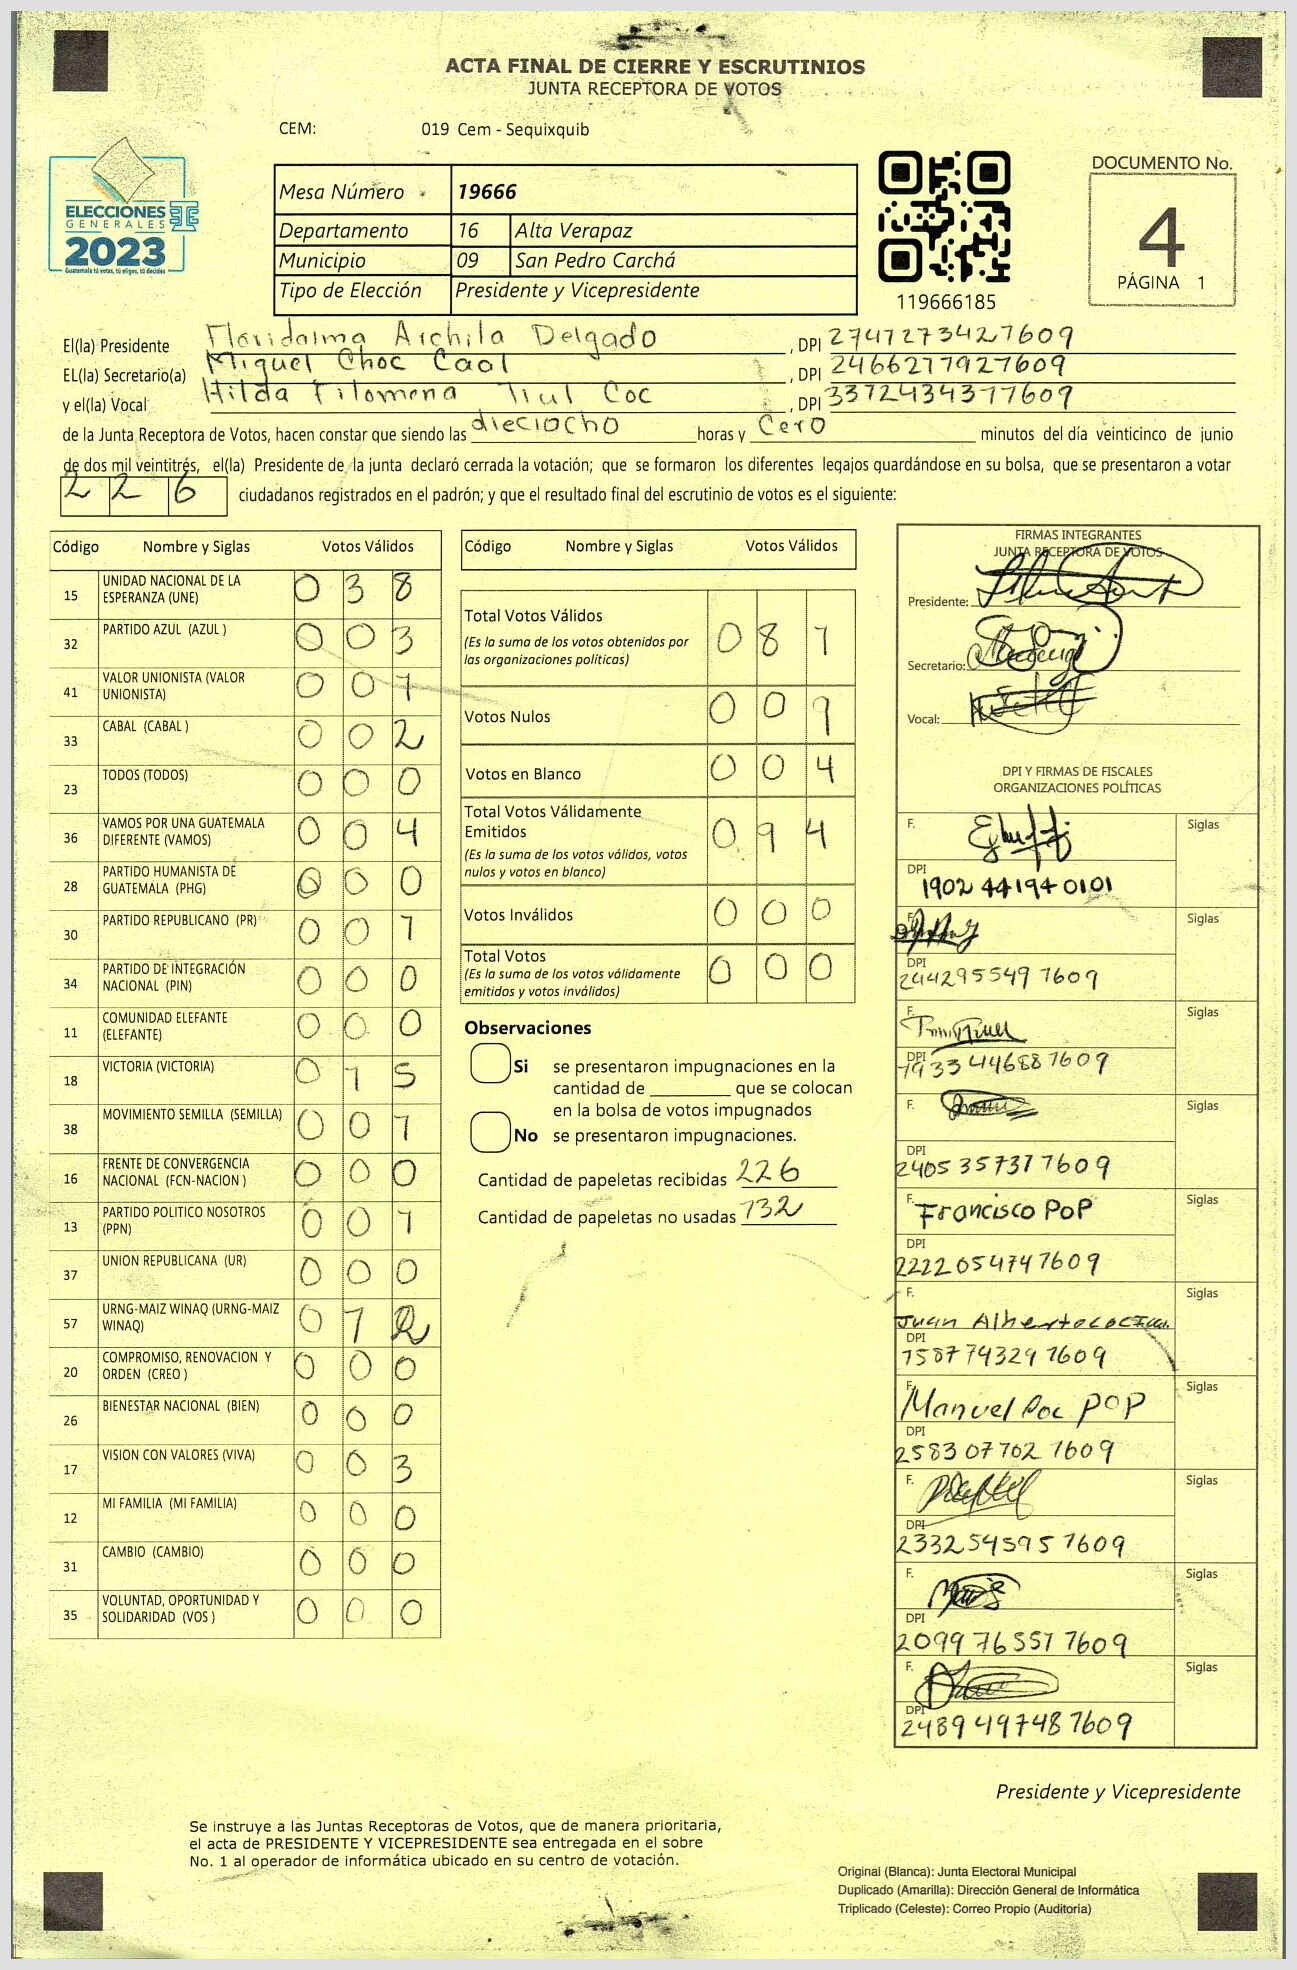 ACTA FINAL DE CIERRE Y ESCRUTINIOS
JUNTA RECEPTORA DE VOTOS
CEM: 019 Cem - Sequixquib
ELECCIONES
GENERALES
2023
Guatemala tú votas, tú eliges, tú decides
Mesa Número 19666
Departamento 16 Alta Verapaz
Municipio 09 San Pedro Carchá
Tipo de Elección Presidente y Vicepresidente
119666185
DOCUMENTO No.
4
PÁGINA 1
El(la) Presidente Floridalma Archila Delgado , DPI 2747273427609
EL(la) Secretario(a) Miguel Choc Caal , DPI 2466277927609
y el(la) Vocal Hilda Filomena Tiul Coc , DPI 3372434377609
de la Junta Receptora de Votos, hacen constar que siendo las dieciocho horas y cero minutos del día veinticinco de junio
de dos mil veintitrés, el(la) Presidente de la junta declaró cerrada la votación; que se formaron los diferentes legajos guardándose en su bolsa, que se presentaron a votar
226 ciudadanos registrados en el padrón; y que el resultado final del escrutinio de votos es el siguiente:
Código Nombre y Siglas Votos Válidos
15 UNIDAD NACIONAL DE LA ESPERANZA (UNE) 0 3 8
32 PARTIDO AZUL (AZUL ) 0 0 3
41 VALOR UNIONISTA (VALOR UNIONISTA) 0 0 1
33 CABAL (CABAL ) 0 0 2
23 TODOS (TODOS) 0 0 0
36 VAMOS POR UNA GUATEMALA DIFERENTE (VAMOS) 0 0 4
28 PARTIDO HUMANISTA DE GUATEMALA (PHG) 0 0 0
30 PARTIDO REPUBLICANO (PR) 0 0 1
34 PARTIDO DE INTEGRACIÓN NACIONAL (PIN) 0 0 0
11 COMUNIDAD ELEFANTE (ELEFANTE) 0 0 0
18 VICTORIA (VICTORIA) 0 1 5
38 MOVIMIENTO SEMILLA (SEMILLA) 0 0 1
16 FRENTE DE CONVERGENCIA NACIONAL (FCN-NACION ) 0 0 0
13 PARTIDO POLITICO NOSOTROS (PPN) 0 0 1
37 UNION REPUBLICANA (UR) 0 0 0
57 URNG-MAIZ WINAQ (URNG-MAIZ WINAQ) 0 1 2
20 COMPROMISO, RENOVACION Y ORDEN (CREO ) 0 0 0
26 BIENESTAR NACIONAL (BIEN) 0 0 0
17 VISION CON VALORES (VIVA) 0 0 3
12 MI FAMILIA (MI FAMILIA) 0 0 0
31 CAMBIO (CAMBIO) 0 0 0
35 VOLUNTAD, OPORTUNIDAD Y SOLIDARIDAD (VOS ) 0 0 0
Código Nombre y Siglas Votos Válidos
Total Votos Válidos 0 8 1
(Es la suma de los votos obtenidos por
las organizaciones políticas)
Votos Nulos 0 0 9
Votos en Blanco 0 0 4
Total Votos Válidamente
Emitidos 0 9 4
(Es la suma de los votos válidos, votos
nulos y votos en blanco)
Votos Inválidos 0 0 0
Total Votos 0 0 0
(Es la suma de los votos válidamente
emitidos y votos inválidos)
Observaciones
Si se presentaron impugnaciones en la
cantidad de ________ que se colocan
en la bolsa de votos impugnados
No se presentaron impugnaciones.
Cantidad de papeletas recibidas 226
Cantidad de papeletas no usadas 132
FIRMAS INTEGRANTES
JUNTA RECEPTORA DE VOTOS
Presidente:
Secretario:
Vocal:
DPI Y FIRMAS DE FISCALES
ORGANIZACIONES POLÍTICAS
F. Siglas
DPI
1902 44194 0101
F. Siglas
DPI
244295549 7609
F. Siglas
DPI
1933446887609
F. Siglas
DPI
2405357377609
F. Francisco PoP Siglas
DPI
2222054747609
F. Juan Alberto Coc Siglas
DPI
1587743297609
F. Manuel Poc POP Siglas
DPI
2583077027609
F. Siglas
DPI
2332545957609
F. Siglas
DPI
2099765577609
F. Siglas
DPI
2489497487609
Presidente y Vicepresidente
Se instruye a las Juntas Receptoras de Votos, que de manera prioritaria,
el acta de PRESIDENTE Y VICEPRESIDENTE sea entregada en el sobre
No. 1 al operador de informática ubicado en su centro de votación.
Original (Blanca): Junta Electoral Municipal
Duplicado (Amarilla): Dirección General de Informática
Triplicado (Celeste): Correo Propio (Auditoria)